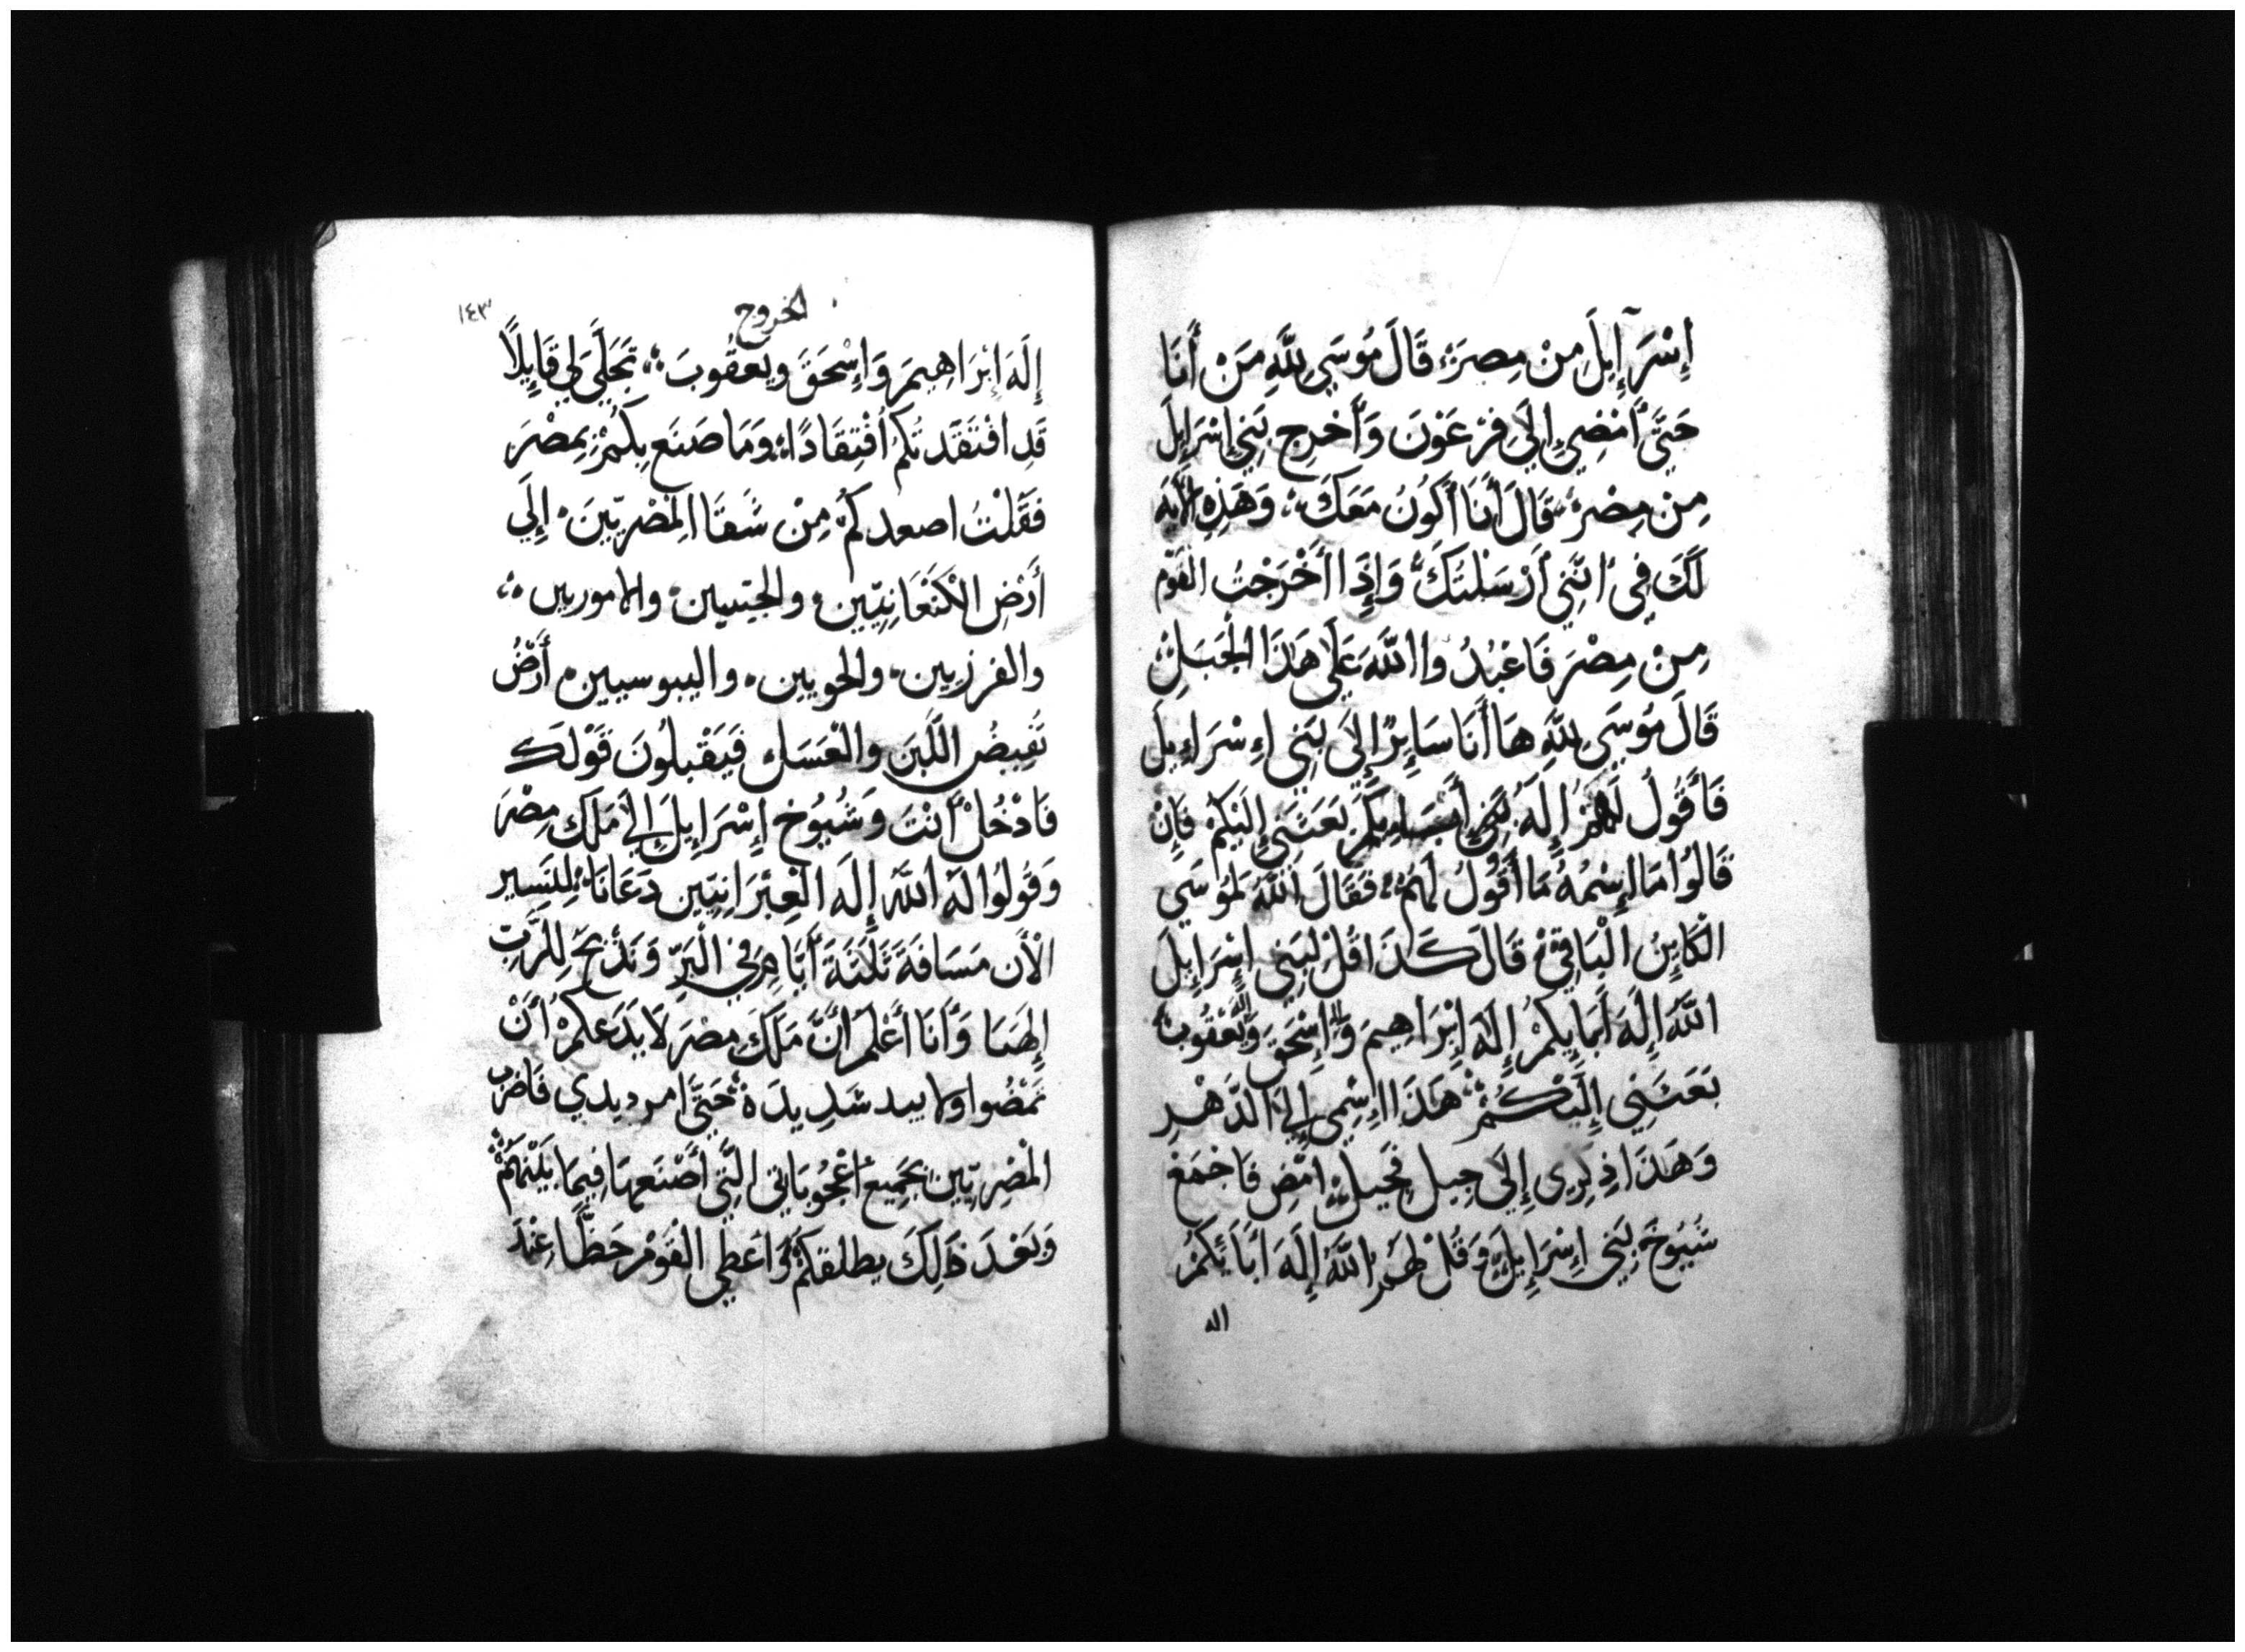 إِسْرَآإِيلَ مِنْ مِصرَ، قَالَ مُوسَي لِلَّهِ مَنْ أَنَا
حَتَّي أَمْضِي إِلَي فِرْعَوْنَ وَأَخْرِج بَنِي إِسْرَايِلَ
مِنْ مِصْرَ، قَالَ أَنَا أَكُونُ مَعَكَ، وَهَذِهِ الآيَه
لَكَ فِي انَّنِي أَرْسَلْتُكَ، وَإِذَا أَخْرَجْتُ القَوْم
مِنْ مِصْرَ فَاعْبُدُوا اللَّهَ عَلَي هَذَا الْجَبَلِ
قَالَ مُوسَي لِلَّهِ هَا أَنَا سَايِرٌ إِلَي بَنِي اءِسْرَاءِيلَ
فَأَقُولُ لَهُمْ إِلَهُ بعَثَنِي إِلَيْكُمْ فَاِنْ
قَالُوا مَا اِسْمُهُ مَا أَقُولُ لَهُمْ، فَقَالَ اللَّهُ لِمُوسَي
الْكَايِنُ الْبَاقِي، قَالَ كَذَا قُلْ لِبَنِي إِسْرَايِلَ
اللَّه إِلَهَ أَبَايِكُمْ إِلَهَ اِبْرَاهِيمَ وَاله اِسْحَقَ وَاله يَعْقُوبَ
بَعَثَنِي إِلَيْكُمْ، هَذَا اِسْمِي إِلَي الدَّهْرِ
وَهَذَا ذِكْرِي إِلَي جِيل فَجِيل، امْضِ فَاجْمَعْ
شُيُوخَ بَنِي اِسْرَايِلَ وَقُلْ لَهُمُ اللَّهُ إِلَهَ ابَايُكُمْ
اله
الخروج
١٤٣
إِلَهَ اِبْرَاهِيمَ وَإِسْحَقَ وَيَعقُوبَ، تَجَلَّي لِي قَايِلًا
قَدِ افْتَقَدتُكُم اُفْتِقَادًا، وَمَا صَنَعَ بِكُمْ بِمِصْرَ
فَقَلْتُ اصعدكمُ مِنْ شَقَا المِصْرِيّينَ، إِلَي
أَرْضِ الْكَنْعَانِيّين، والحِتيين، والاموريين،
والفرزيين، والحويين، واليبوسيين، أَرْضُ
تَفِيضُ اللَّبن والْعَسَل، فَيَقْبَلُونَ قَوْلَكَ
فَادْخُلْ أَنْتَ وَشُيُوخ إِسْرَايِلَ إِلَي مَلَك مِصْرَ
وَقُولُوا لَهُ اللَّهُ إِلَه الْعِبْرَانِيّين دَعَانَا، لِنَسِير
الْأَن مَسَافَةَ ثَلَثَةَ أَيَّامٍ فِي الْبَرِّ وَنَذْبَحَ لِلرَّبِّ
اِلهَنَا وَأَنَا أَعْلَمُ أَنَّ مَلَكَ مِصْرَ لَا يَدَعكمْ أَنْ
تَمْضُوا ولا بيد شَدِيدَة، حَتَّي امر ديدي فَاضْرب
المْصِرِيّين بِجَمِيع اُعْجُوبَاتِي الَّتِي أَصْنَعهَا فِيمَا بَيْنَهُمْ
وَبَعْدَ ذَلِكَ يطلقكُمْ وَاعَطِي القَوْمْ حَظًّا عِنْدَ